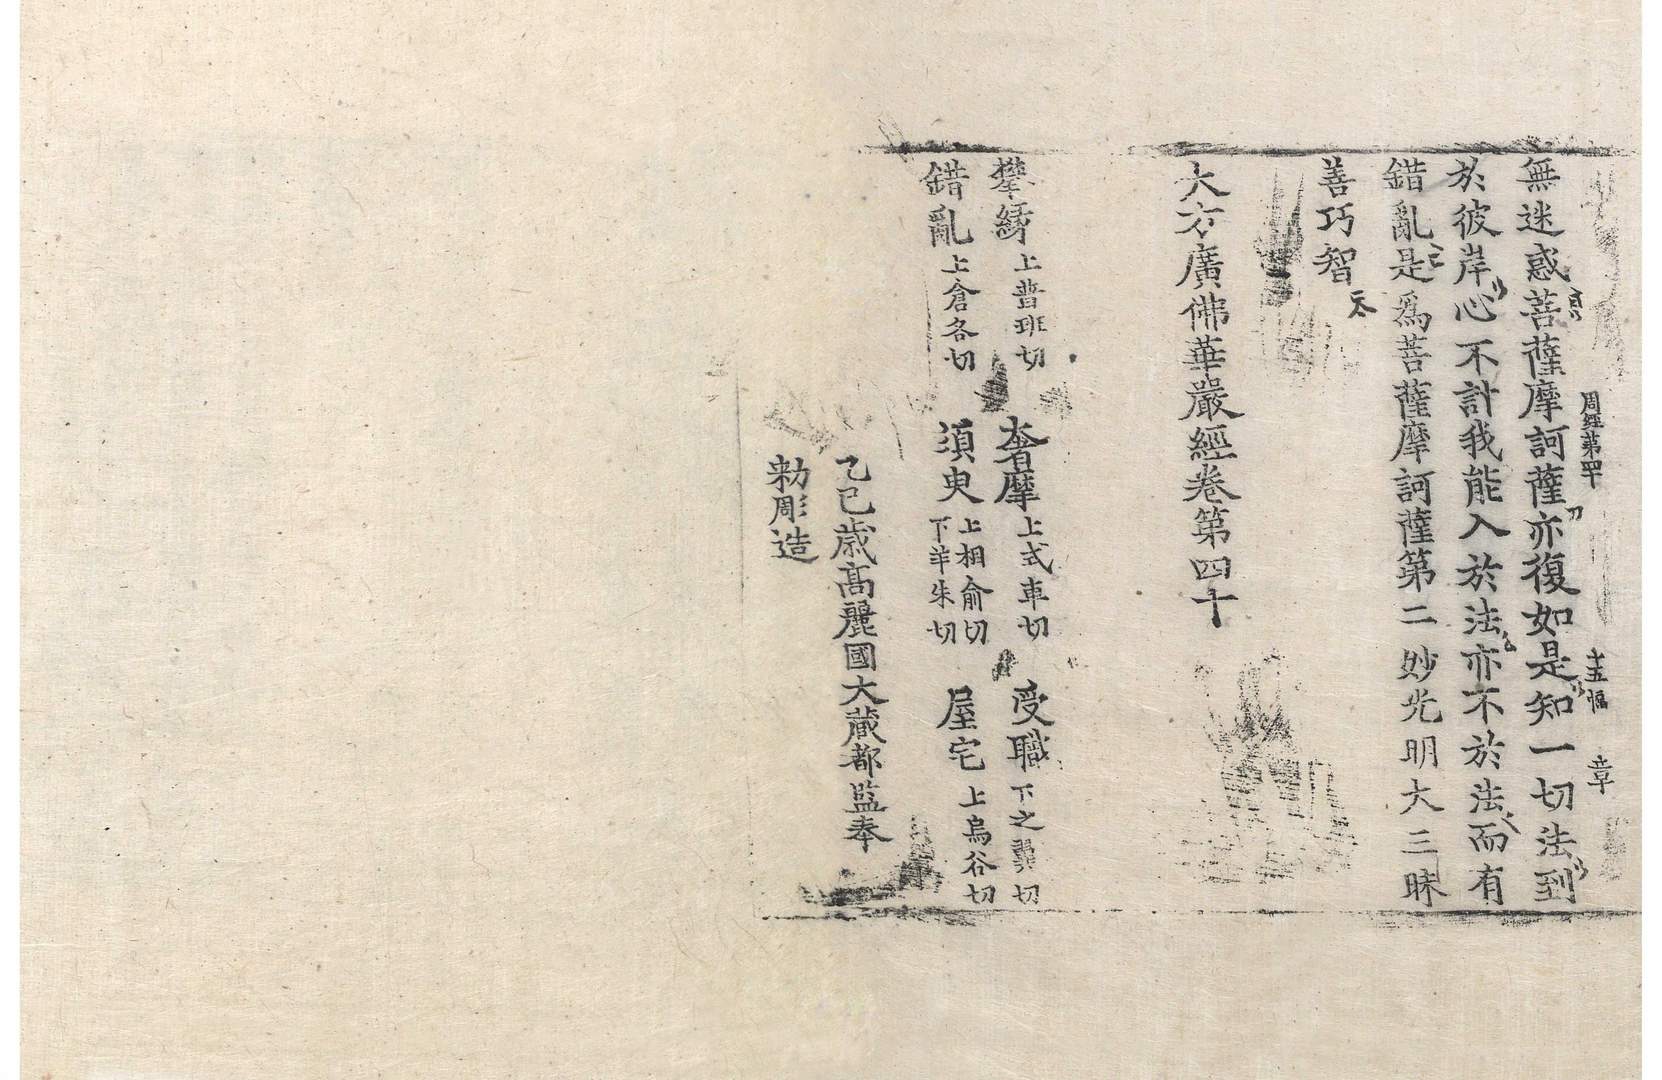 周經第四十 十五幅 章
無迷惑菩薩摩訶薩亦復如是知一切法到
於彼岸心不計我能入於法亦不於法而有
錯亂是爲菩薩摩訶薩第二妙光明大三昧
善巧智
大方廣佛華嚴經卷第四十
攀緣 上普班切 奢摩 上式車切 受職 下之翼切
錯亂 上倉各切 須臾 上相俞切 下羊朱切 屋宅 上烏谷切
乙巳歲高麗國大藏都監奉
勅彫造